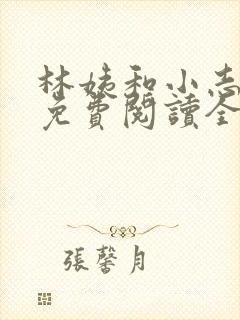 林姨和小志
免費閱讀全
張馨月